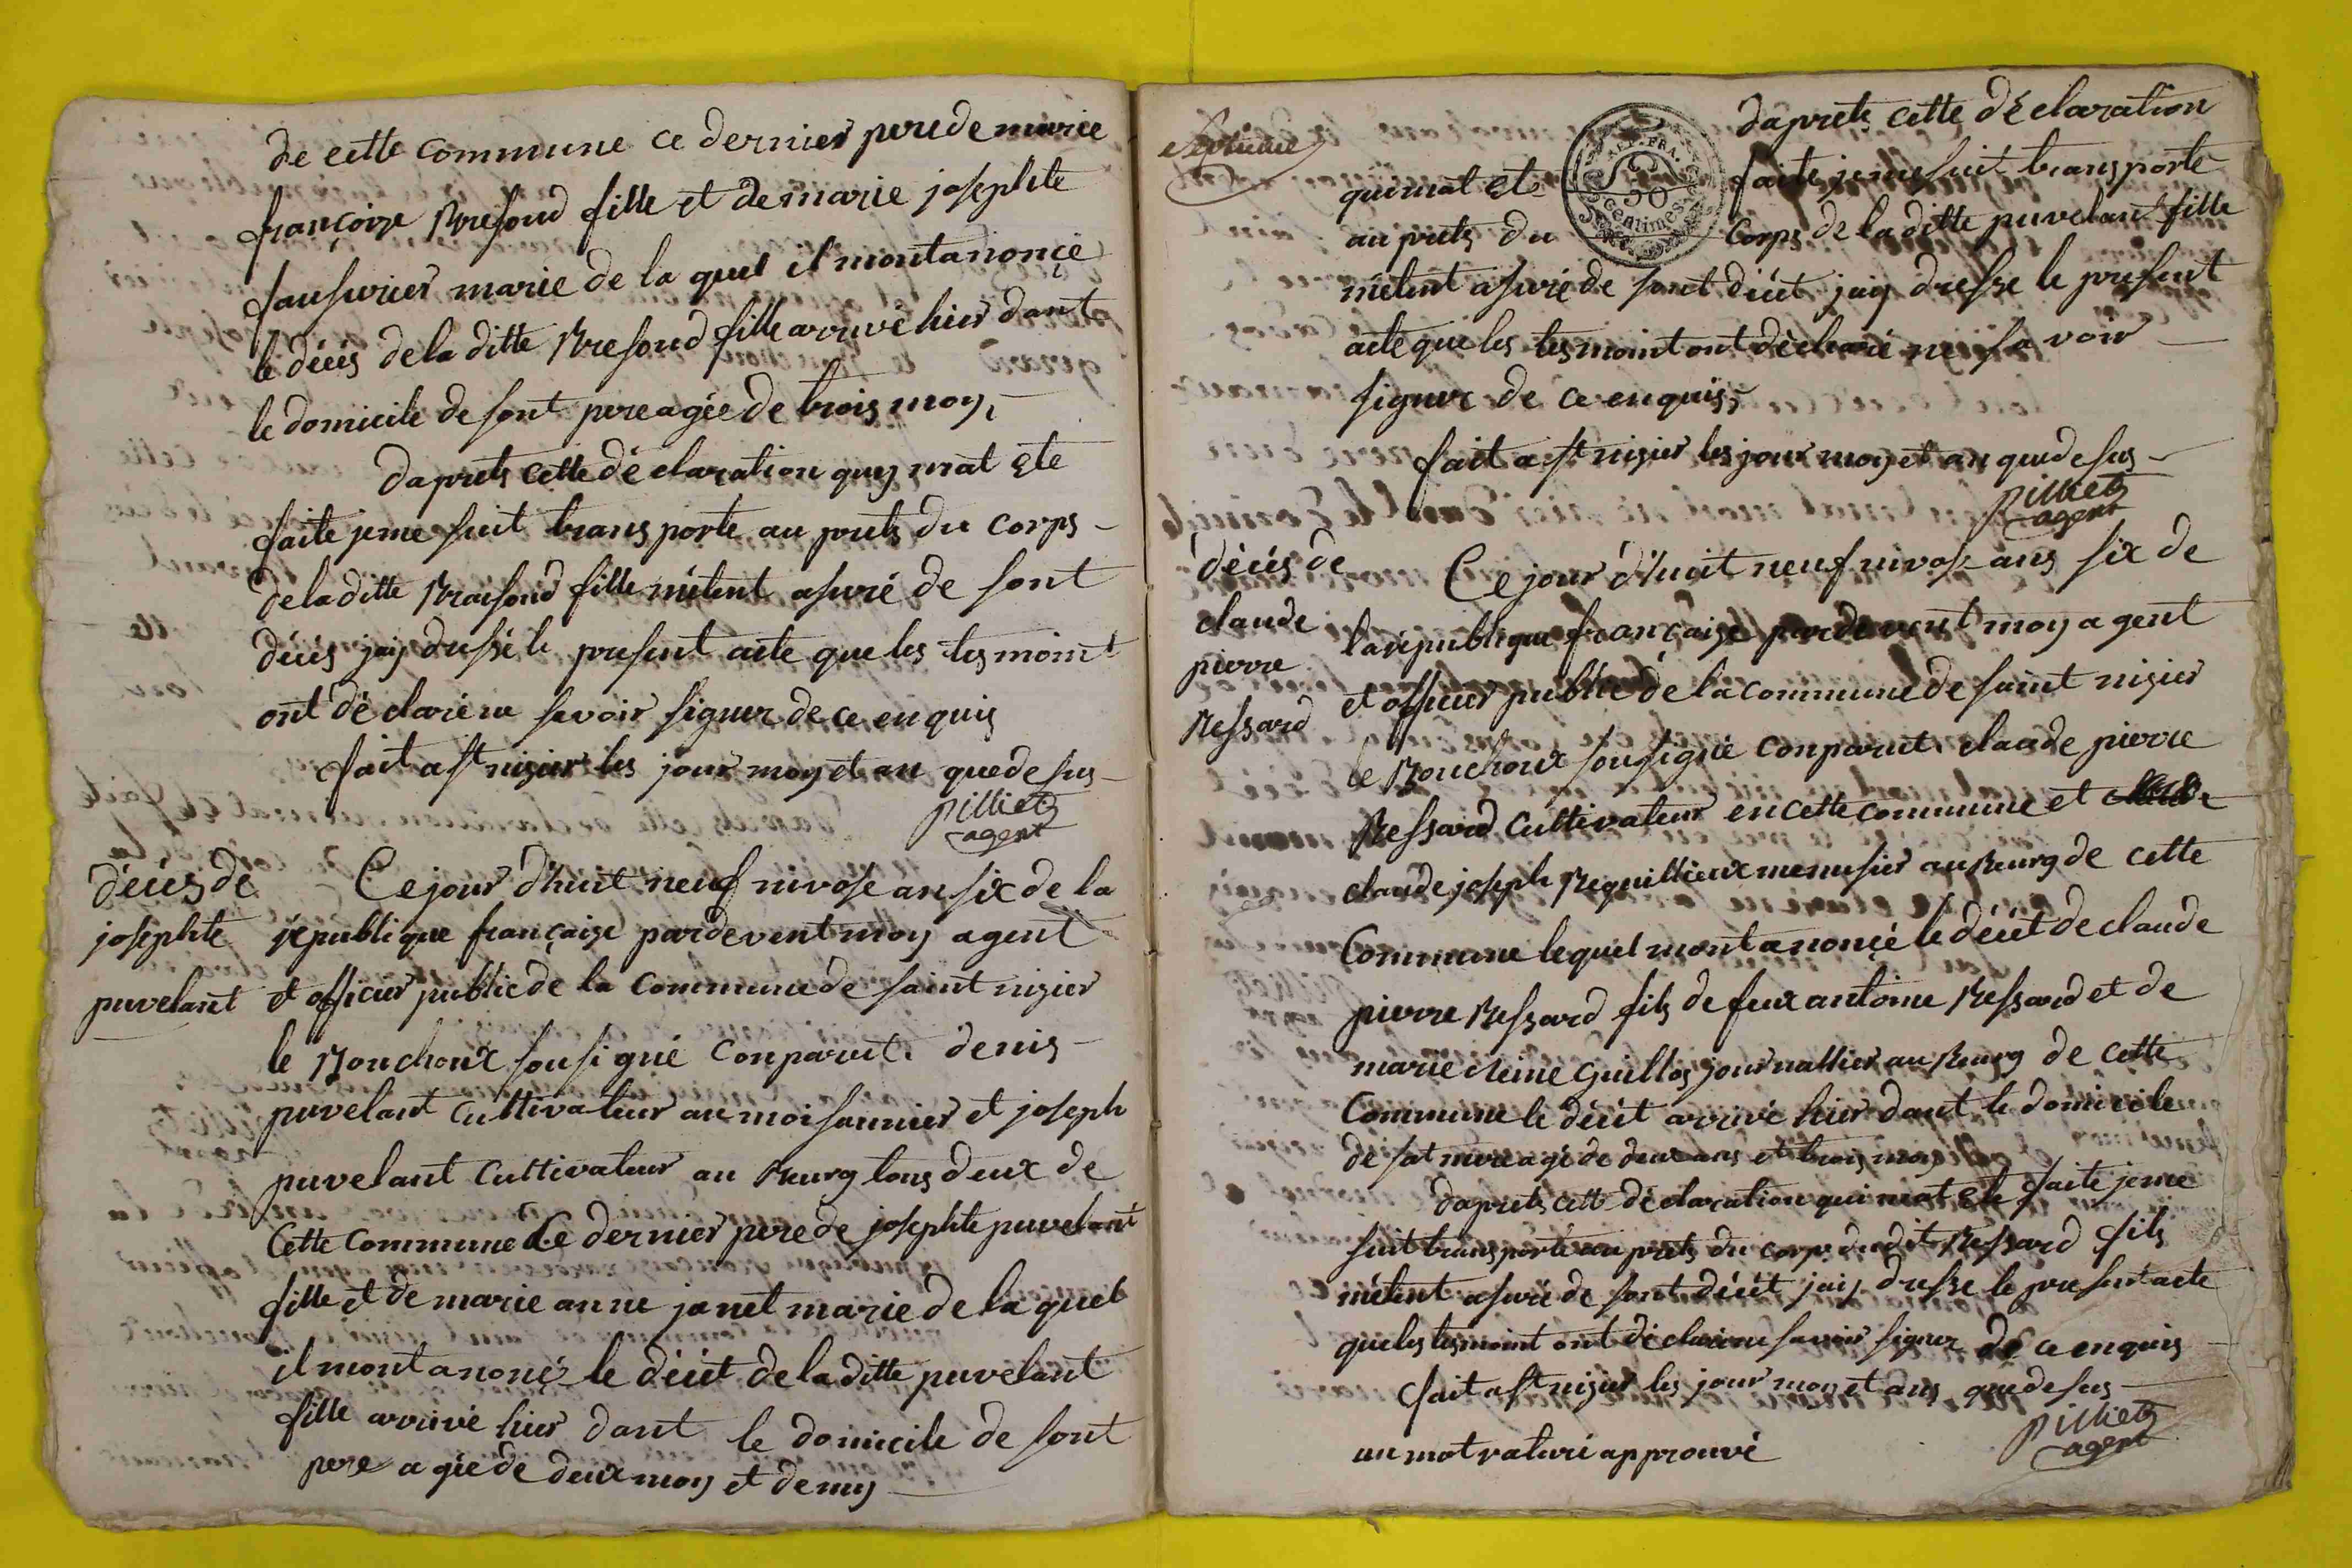 de cette commune ce dernier pere de marie
françoize Brefoud fille et de marie josephte
faufurier marie de la quel il montanonçé
le décés de la ditte Brefoud fille arrivé hier dant
le domicile de sont pere agée de trois moy,
daprets cette déclaration quy mat ete
faite jeme suit transporte au prets du corps
de la ditte Braifoud fille métent asuré de sont
décés jaij dressé le present acte que les tesmoint
ont déclaré ne sevoir signer de ce enquis
fait a st nizier les jour moy et an que desus
pilliet
agent
décés de
josephte
puvelant
Ce jour dhuit neuf nivose an six de la
république françaize pardevent moy agent
et officier publicde la commune de saint nizier
le Bouchoux sousigné conparut. denis
puvelant cultivateur au moisonnier et joseph
puvelant cultivateur au Bourg tous deux de
Cette commune Ce dernier pere de josephte puvelant
fille et de marie anne janet marie de la quel
il mont anonçé le décét de la ditte puvelant
fille arrivé hier dant le domicile de sont
pere agée de deux moy et demy
daprets cette déclaration
qui mat eté faite jeme suit transporte
au prets du Corps de la ditte puvelant fille
métent asuré de sont décét jaiy dresse le present
acte que les tesmoint ont déclaré ne sa voir
signer de ce enquis,
fait a st nizier les jour moy et an que desus
pilliet
agent
décés de
claude
pierre
Bessard
Ce jour d'huit neuf nivose ans six de
la république française par devent moy agent
et officier public de la commune de saint nizier
le Bouchoux sousigné conparut. claude pierre
Bessard cultivateur en cette commune et
claude joseph Reguillieux menusier au Bourg de cette
Commune lequel mont anonçé le décét de claude
pierre Bessard fils de feux antoine Bessard et de
marie Reine Guillos journallier au Bourg de cette
Commune le décét arrivé hier dant le domicile
de sat mere agé de deux ans et trois moy
daprets cette déclaration qui mat ete faite jeme
suit transporté au prets du corp dudit Bessard fils
métent asuré de sont décét jaiy dresse le present acte
que les tesmoint ont déclaré ne savoir signer de ce enquis
fait a st nizier les jour moy et ans que desus
pilliet
agent
un mot raturé approuvé
50
centimes